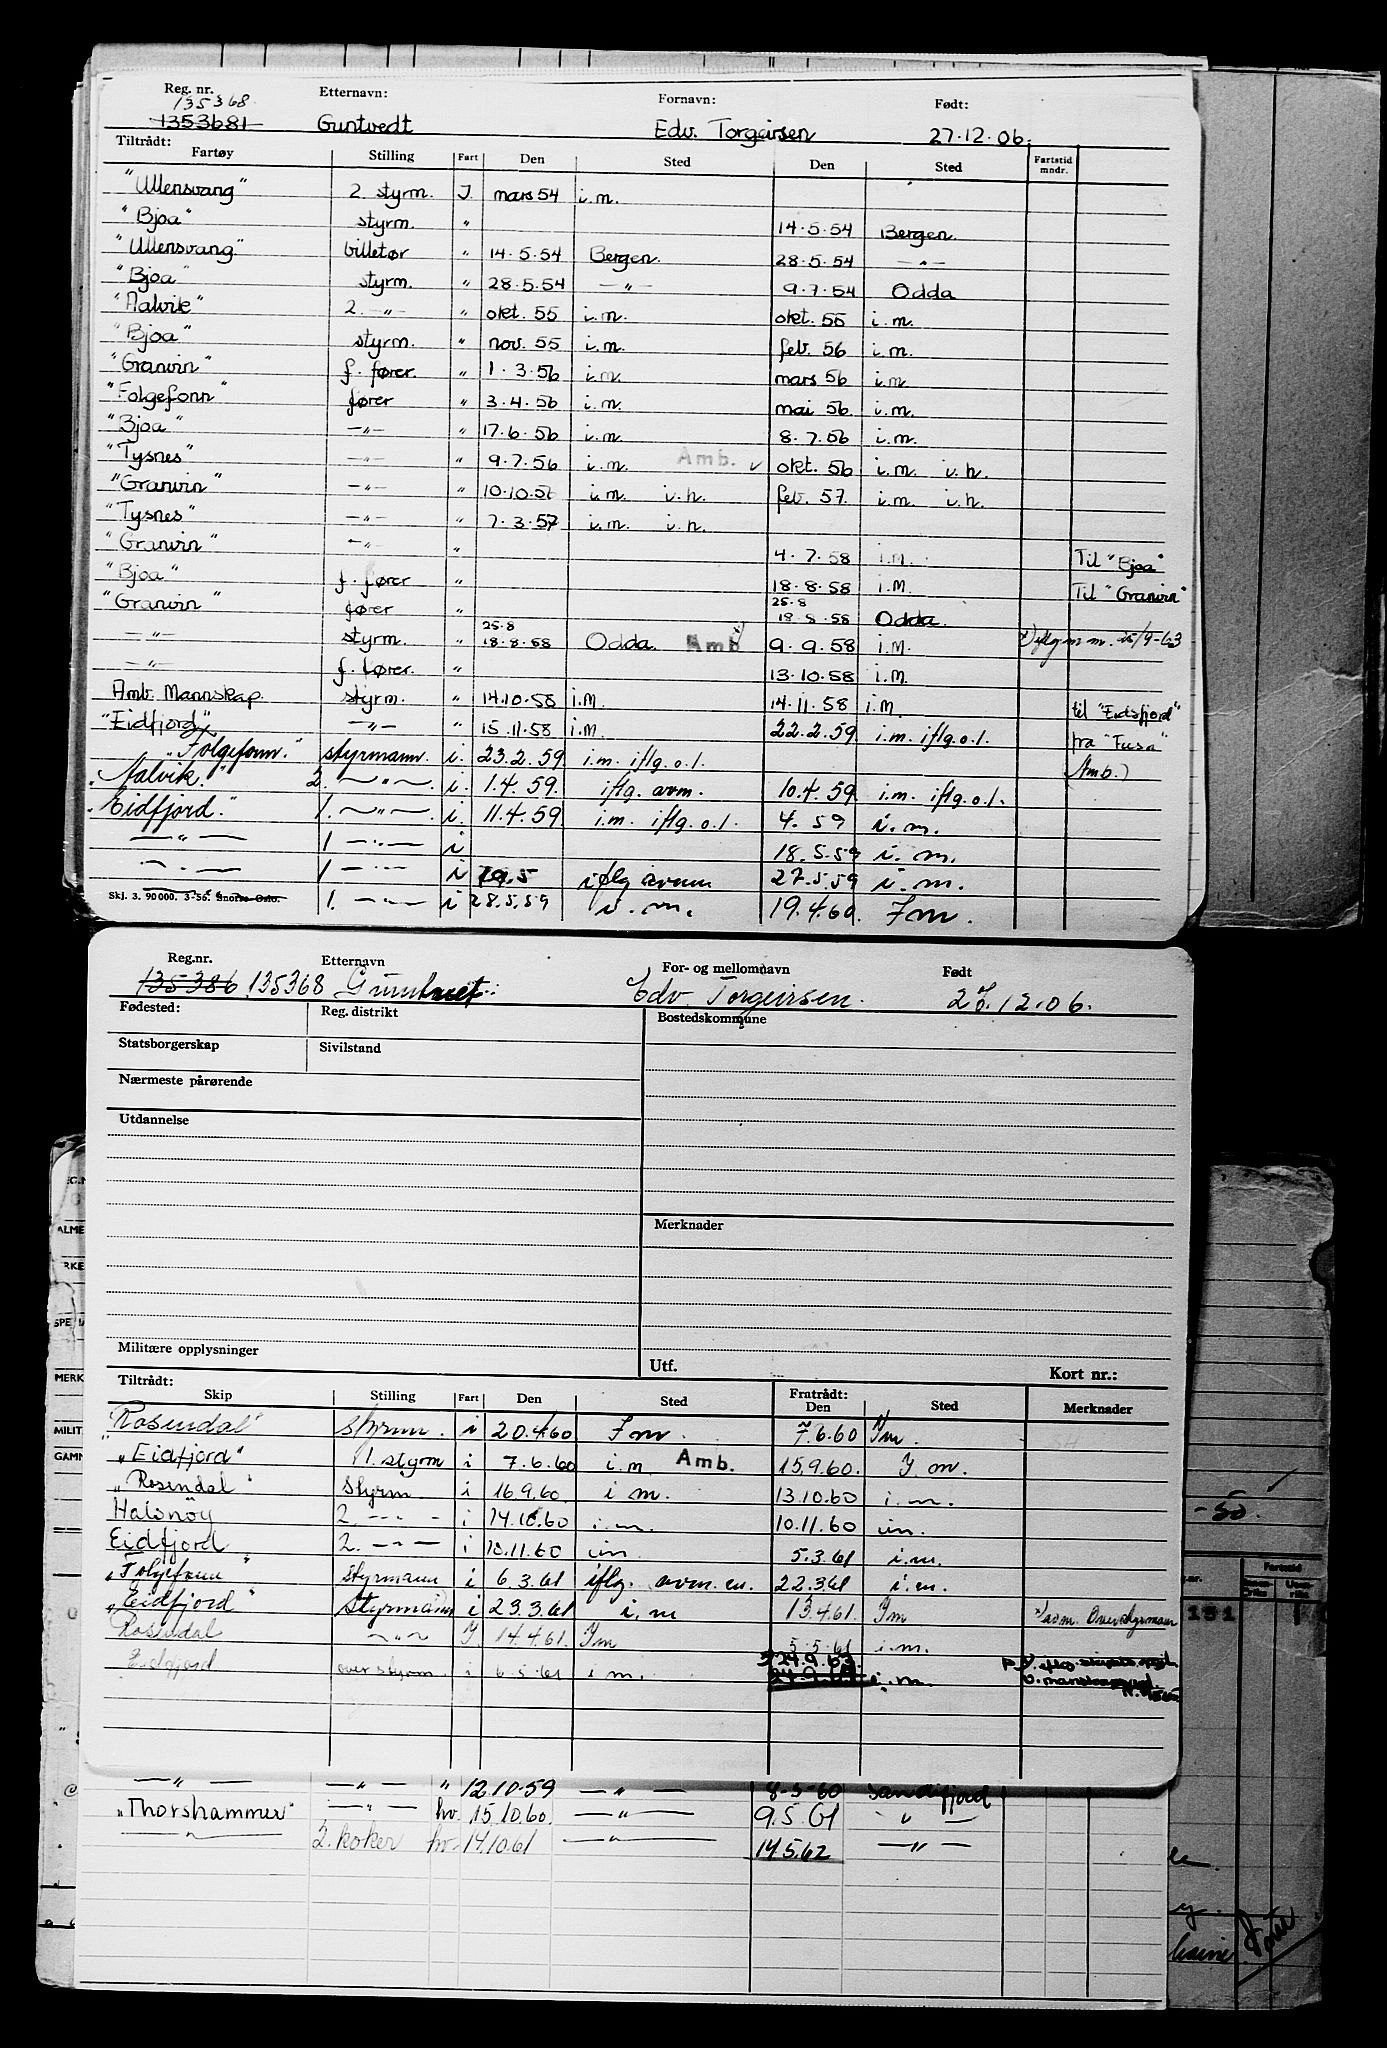 Reg. nr. Etternavn: Fornavn: Født:
135368
1353681 Guntvedt Edv. Torgeirsen 27.12.06.
Tiltrådt:
Fartøy Stilling Fart Den Sted Den Sted Fartstid mndr.
"Ullensvang" 2. styrm. I. mars 54 i.m.
"Bjoa" styrm. " 14.5.54 Bergen.
"Ullensvang" billetør " 14.5.54 Bergen. 28.5.54 —"—
"Bjoa" styrm. " 28.5.54 —"— 9.7.54 Odda
"Aalvik" 2. —"— " okt. 55 i.m. okt. 55 i.m.
"Bjoa" styrm. " nov. 55 i.m. feb. 56 i.m.
"Granvin" f. fører. " 1.3.56 i.m. mars 56 i.m
"Folgefonn" fører " 3.4.56 i.m. mai 56. i.m.
"Bjoa" —"— " 17.6.56 i.m. 8.7.56 i.m.
"Tysnes" —"— " 9.7.56 i.m. Amb. v okt. 56 i.m. i.h.
"Granvin" —"— " 10.10.56 i.m. i.h. feb. 57. i.m. i.h.
"Tysnes" —"— " 7.3.57 i.m. i.h.
"Granvin" —"— " 4.7.58 i.m. Til "Bjoa"
"Bjoa" f. fører " 18.8.58 i.m Til "Granvin"
25.8
"Granvin" fører " 18.8.58 Odda.
25.8
—"— styrm. " 18.8.58 Odda. Amb 9.9.58 i.m.
—"— f. fører. " 13.10.58 i.m.
Amb. Mannskap. styrm. " 14.10.58 i.m. 14.11.58 i.m. til "Eidsfjord"
"Eidfjord" —"— " 15.11.58 i.m. 22.2.59 i.m. iflg.o.l. fra "Fusa"
"Folgefonn." styrmann. i. 23.2.59 i.m. iflg.o.l. (Amb.)
"Aalvik." 2. —"— i. 1.4.59. iflg. avm. 10.4.59 i.m. iflg.o.l.
"Eidfjord." 1. —"— i. 11.4.59 i.m. iflg.o.l. 4.59 i.m.
—"— 1 —"— i 18.5.59 i.m.
—"— 1 —"— i 19.5 iflg avm 27.5.59 i.m.
Skj. 3. 90000. 3-56. Snorre Oslo. 1. —"— i 28.5.59 i.m. 19.4.60. I m.
Reg.nr. Etternavn For- og mellomnavn Født
135386 135368 Edv. Torgeirsen. 27.12.06.
Fødested: Reg. distrikt Bostedskommune
Statsborgerskap Sivilstand
Nærmeste pårørende
Utdannelse
Merknader
Militære opplysninger Utf. Kort nr.:
Tiltrådt: Fratrådt:
Skip Stilling Fart Den Sted Den Sted Merknader
"Rosendal" styrm. i 20.4.60 I m. 7.6.60 I m.
"Eidfjord" 1. styrm i 7.6.60 i.m Amb. 15.9.60. I m.
"Rosendal" Styrm i 16.9.60. i m. 13.10.60 i.m.
Halsnöy 2. —"— i 14.10.60 i.m. 10.11.60 im
Eidfjord 2. —"— i 10.11.60 im 5.3.61 i.m.
"Folgefonn" styrmann i 6.3.61 iflg. avm. 22.3.61 i.m.
"Eidfjord" Styrmann i 23.3.61 i.m 13.4.61. I m avm. Overstyrmann
Rosendal —"— I. 14.4.61. I m 5.5.61 i.m.
24.9.63
Eidfjord overstyrm. i 6.5.61 i m. i.m.
—"— —"— " 12.10.59 —"— 8-5-60 Sandefjord
"Thorshammer" —"— hv. 15.10.60. —"— 9.5.61 —"—
—"— 2. koker hv. 14.10.61 —"— 14.5.62 —"—
-50.
151